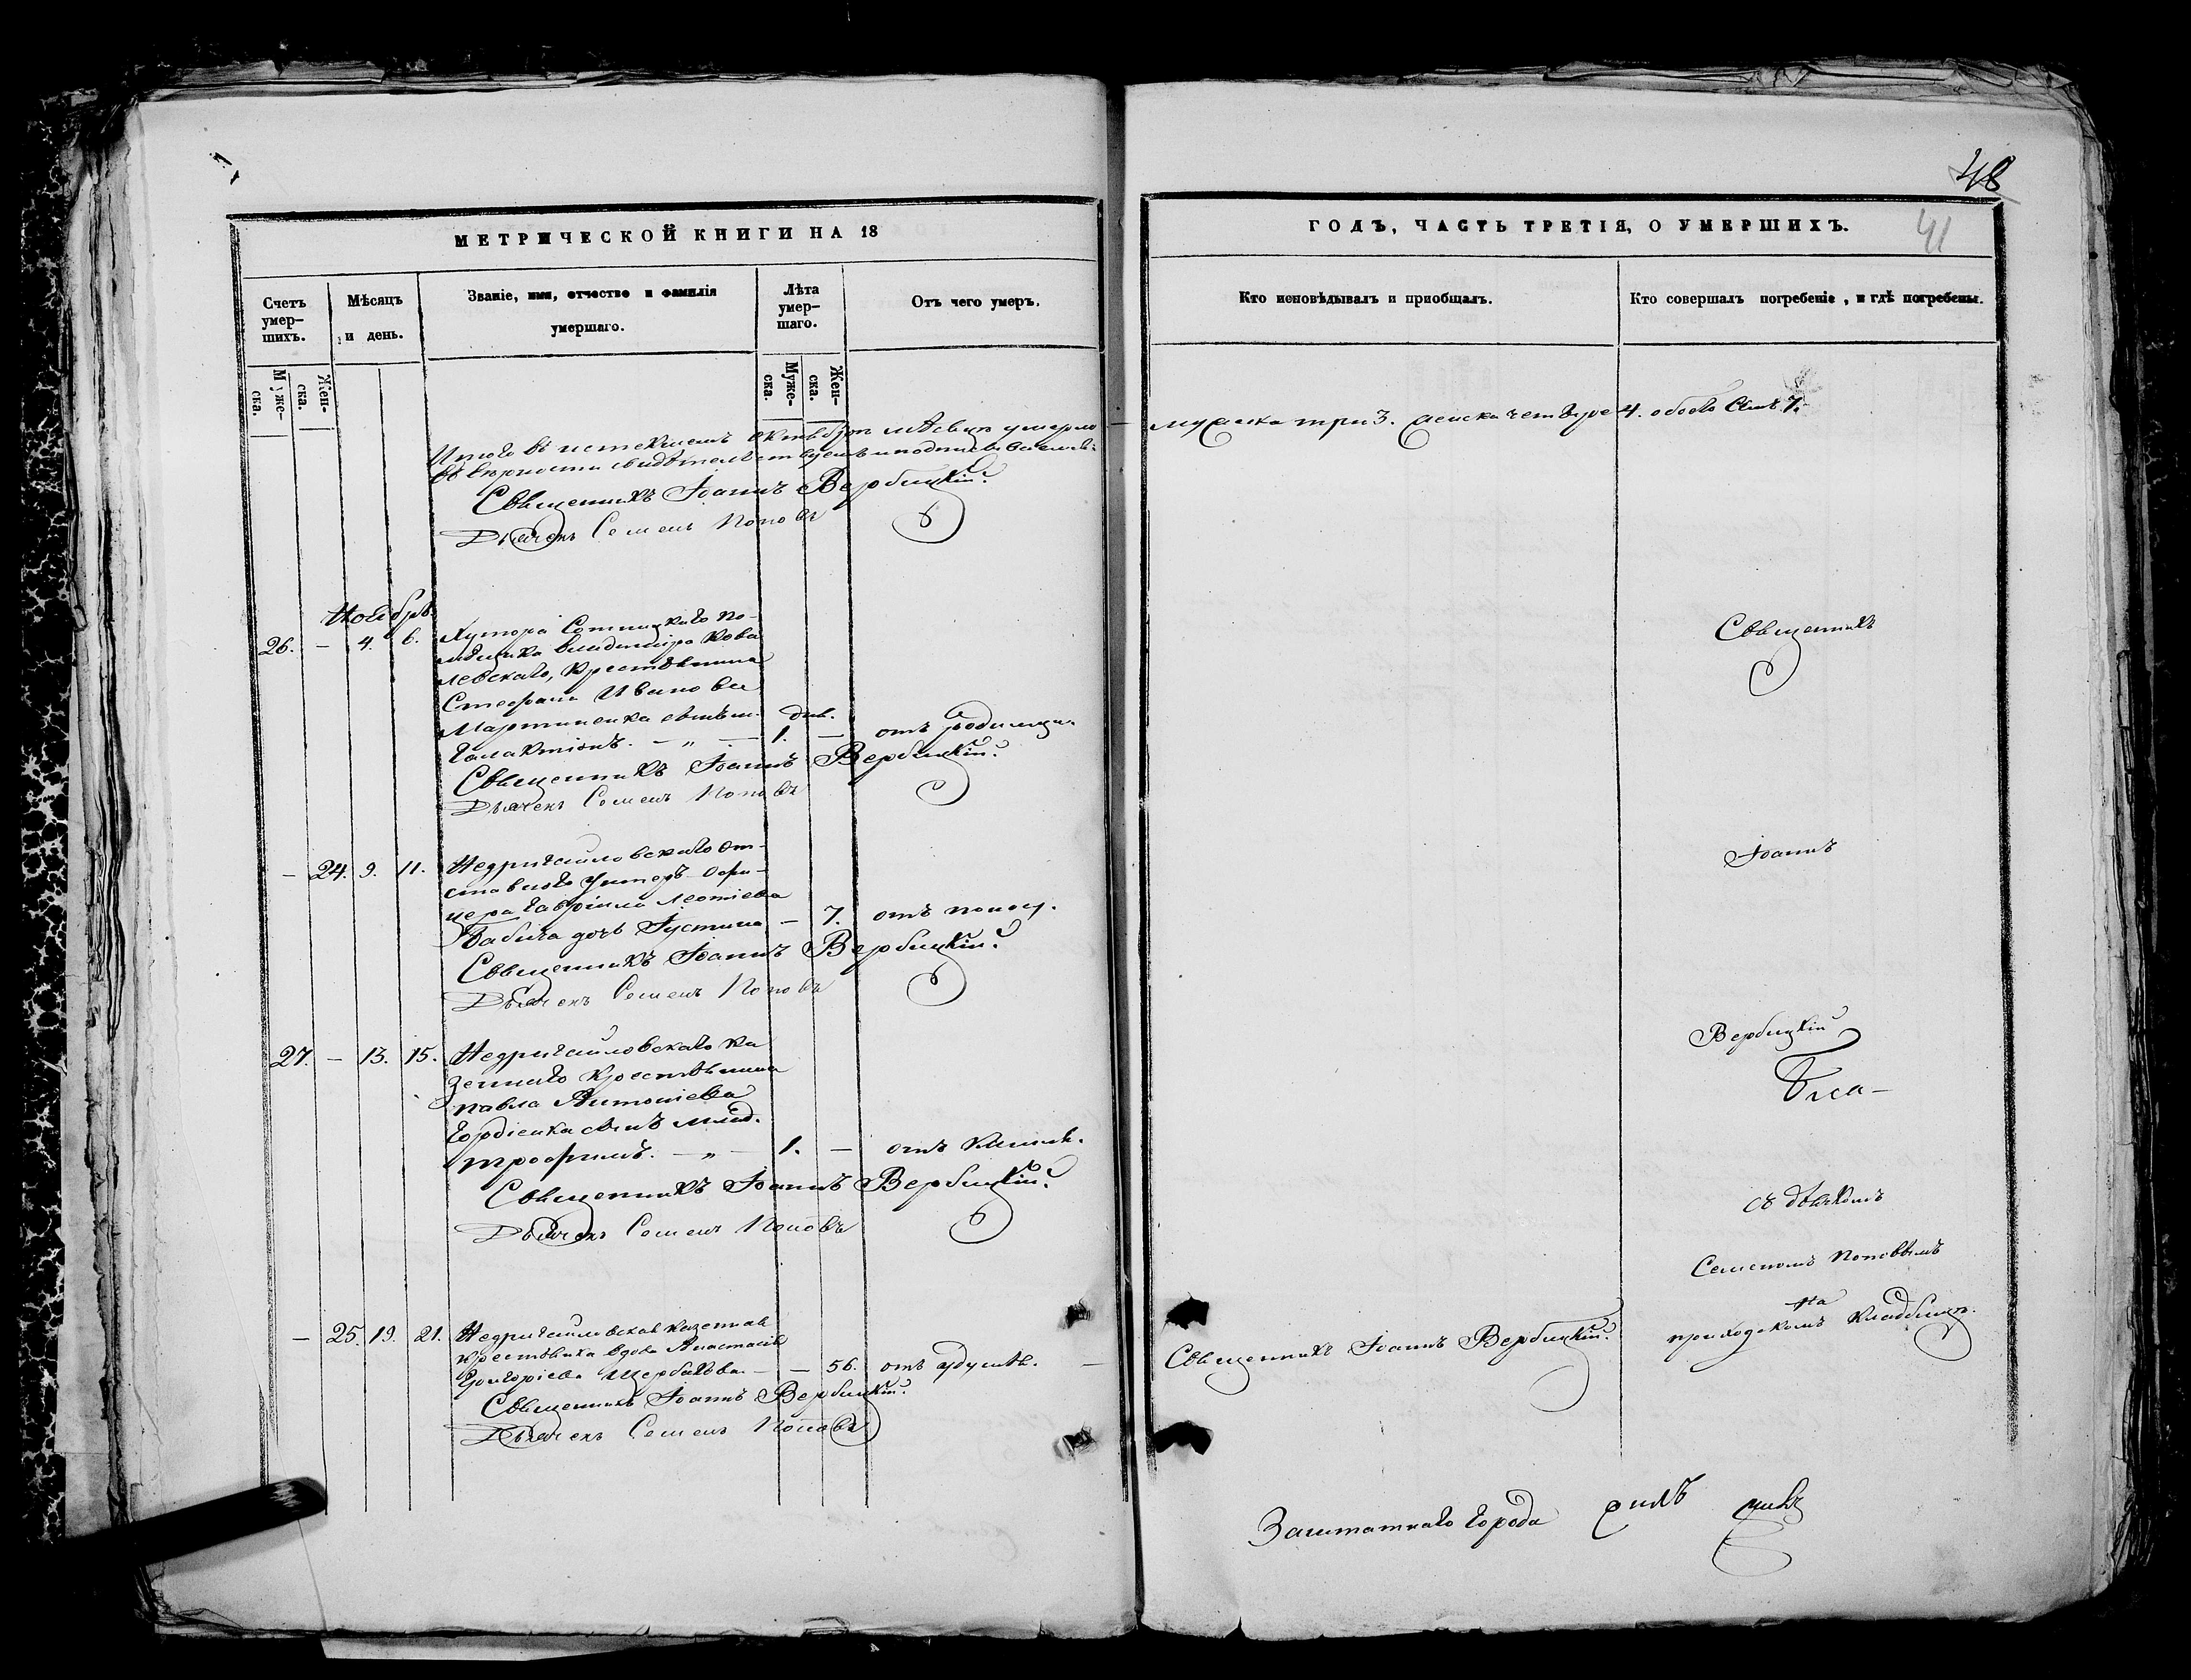 48
41
МЕТРИЧЕСКОЙ КНИГИ НА 18
ГОДЪ, ЧАСТЬ ТРЕТІЯ, О УМЕРШИХЪ.
Счетъ умер–шихъ.
Мѣсяцъ и день.
Званіе, имя, отчество и фамилія умершаго.
Лѣта умер–шаго.
Отъ чего умеръ.
Кто исповѣдывалъ и пріобщалъ.
Кто совершалъ погребеніе, и гдѣ погребены.
Муже–ска.
Жен–ска.
Муже–ска.
Жен–ска.
Итого въ истекшемъ октябрѣ мѣсяцѣ умерло — мужеска три 3. женска четыре 4. обоего семь 7.
въ вѣрности свидѣтельствуемъ и подписываемся:
Священникъ Іоаннъ Вербицкій.
Дьячекъ Семенъ Поповъ
Ноябрь.
26. — 4. 6. Хутора Сотницкаго по–
мѣщика Владиміра Кова
левскаго, крестьянина
Стефана Иванова
Мартиненка сынъ дня.
Галактіонъ. — „ — 1. — отъ родимца.
Священникъ Іоаннъ Вербицкій.
Дьячекъ Семенъ Поповъ
— 24. 9. 11. Недригайловскаго от–
ставнаго Унтеръ–Офи–
цера Гавріила Леонтіева
Бабича дочь Іустина — 7. отъ понос.
Священникъ Іоаннъ Вербицкій.
Дьячекъ Семенъ Поповъ
27. — 13. 15. Недригайловскаго ка
зеннаго крестьянина
Павла Антоніева
Гордіенка сынъ млад.
Трофимъ. — „ — 1. — отъ кашля.
Священникъ Іоаннъ Вербицкій.
Дьячекъ Семенъ Поповъ
— 25. 19. 21. Недригайловская казенная
крестьянка вдова Анастасія
Григоріева Щербакова. — — 56. отъ удушья. —
Священникъ Іоаннъ Вербицкій.
Дьячекъ Семенъ Поповъ
Священникъ Іоаннъ Вербицкій.
Священникъ
Іоаннъ
Вербицкій
съ дьячкомъ
Семеномъ Поповымъ
на
приходскомъ кладбищѣ.
Заштатнаго города